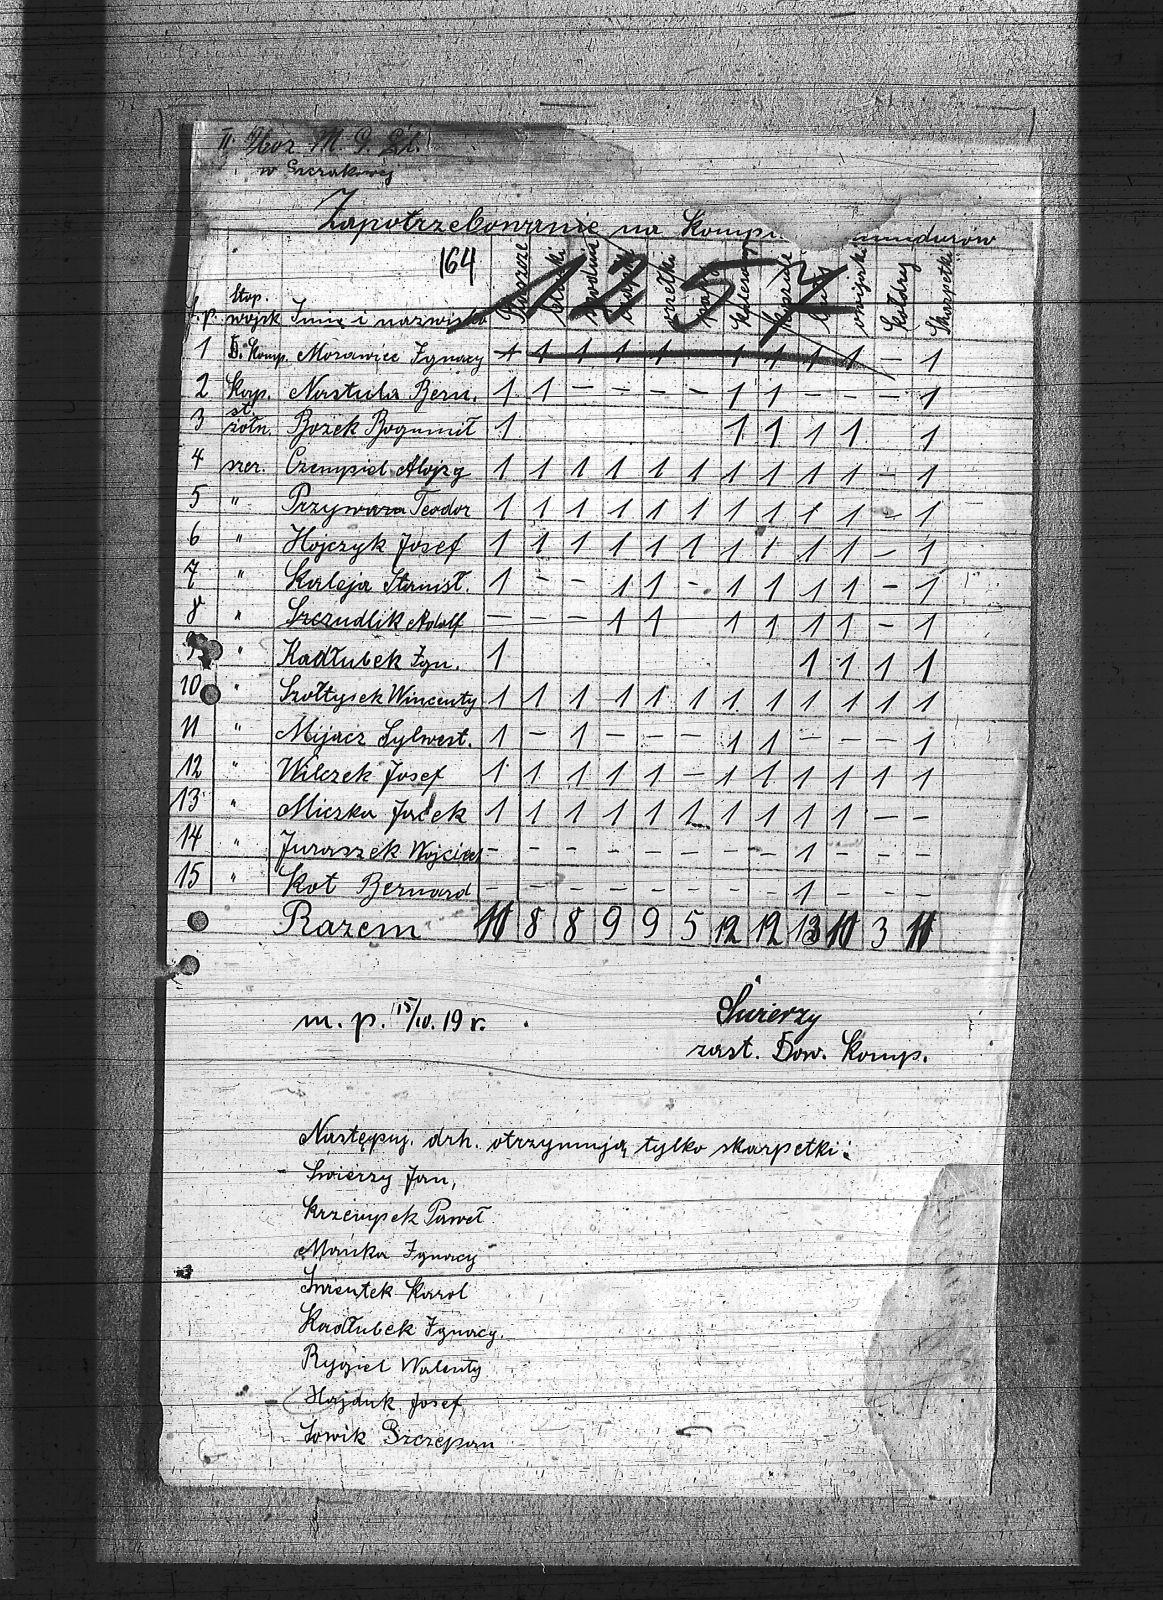 II. Kor. M. G. Śl.
w Szczakowej
Zapotrzebowanie na Komp. mundurów
164
1257
L.p. Stop. wojsk Imię i nazwisko płaszcze bluzki spodnie czapki koszule owijaki Kołdry Skarpetki
1 D. Komp. Morawiec Ignacy 1 1 1 1 1 - 1 1 1 1 — 1
2 Kap. Nastula Bern. 1 1 — — — — 1 1 — — — 1
3 st. żołn. Bożek Bogumił 1 1 1 1 1 1
4 szer. Czempiel Alojzy 1 1 1 1 1 1 1 1 1 1 — 1
5 " Przywara Teodor 1 1 1 1 1 1 1 1 1 1 — 1
6 " Hojczyk Josef 1 1 1 1 1 1 1 1 1 1 — 1
7 " Kaleja Stanisł. 1 — — 1 1 — 1 1 1 1 — 1
8 " Szczudlik Adolf — — — 1 1 - 1 1 1 1 — 1
9 " Kadłubek Ign. 1 1 1 1 1
10 " Szołtysek Wincenty 1 1 1 1 1 1 1 1 1 1 1 1
11 " Mijacz Sylwest. 1 — 1 — — — 1 1 — — — 1
12 " Wilczek Josef 1 1 1 1 1 — 1 1 1 1 1 1
13 " Miczka Jacek 1 1 1 1 1 1 1 1 1 1 — —
14 " Juraszek Wojciech — — — — — — — — 1 — — —
15 " Kot Bernard — — — — — — — — 1 — — —
Razem 11 8 8 9 9 5 12 12 13 10 3 11
m. p. 15/IV. 19 r.
Świerzy
zast. Dow. Komp.
Następuj. drh. otrzymują tylko skarpetki:
Świerzy Jan,
Krzempek Paweł
Mańka Ignacy
Świentek Karol
Kadłubek Ignacy.
Rygiel Walenty
Hajduk Josef
Sowik Szczepan